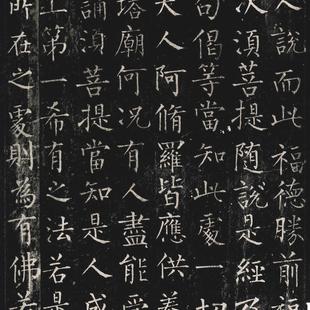 人說而此福德勝前福
次須菩提随說是經乃
句偈等當知此處一切
天人阿脩羅皆應供養
塔廟何況有人盡能受
誦須菩提當知是人成
上第一希有之法若是
所在之處則為有佛若